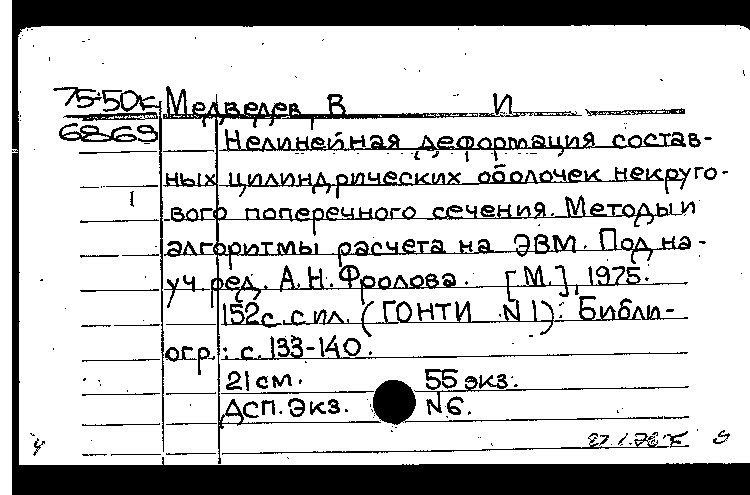 75-50к Медведев, В И
6869
Нелинейная деформация состав-
ных цилиндрических оболочек некруго-
1
вого поперечного сечения. Методы и
алгоритмы расчета на ЭВМ. Под на-
уч ред. А.Н. Фролова. [М.], 1975.
152с. с ил. (ГОНТИ N1). Библи-
огр.: с. 133-140.
21 см. 55 экз.
ДСП. Экз. N6.